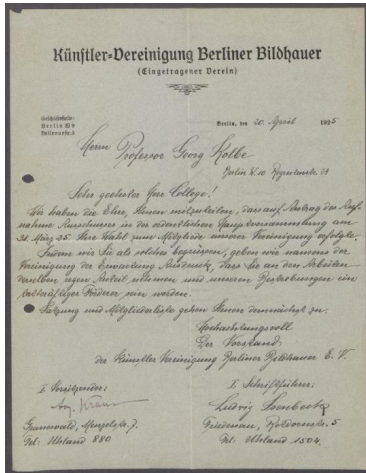 Künstler-Vereinigung Berliner Bildhauer
(Eingetragener Verein)
Geschäftsstelle:
Berlin W 9
Berlin, den 20. April 1925
Herrn Professor Georg Kolbe
Berlin W. 10
Sehr geehrter Herr College!
Wir haben die Ehre, Ihnen mitzuteilen, dass auf Antrag der Auf-
nahme in der ordentlichen Hauptversammlung am
31. März 25. Ihre Wahl zum Mitgliede unserer Vereinigung erfolgte.
Indem wir Sie als solches begrüssen, geben wir namens der
Vereinigung der Erwartung Ausdruck, dass Sie an den Arbeiten
derselben regen Anteil nehmen und unseren Bestrebungen ein
Förderer sein werden.
Satzung und Mitgliederliste gehen Ihnen demnächst zu.
Hochachtungsvoll
Der Vorstand
der Künstler Vereinigung Berliner Bildhauer E. V.
I. Vorsitzender:
I. Schriftführer:
Aug. Kraus
Ludwig Isenbeck
Grunewald, Menzelstr. 7.
Friedenau, 5
Tel: Uhland 880
Tel. Uhland 1504.